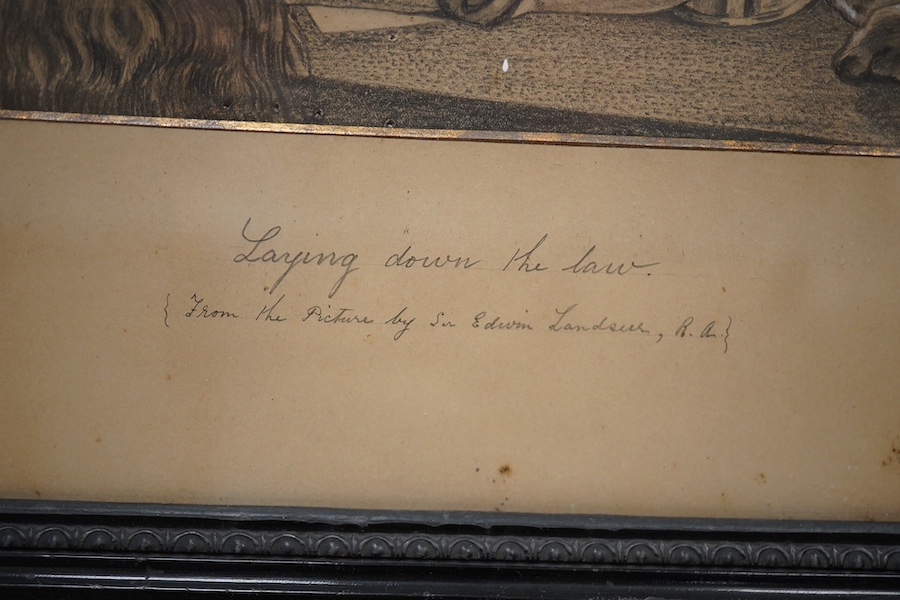 Laying down the law.
{ From the Picture by Sir Edwin Landseer, R. A.}